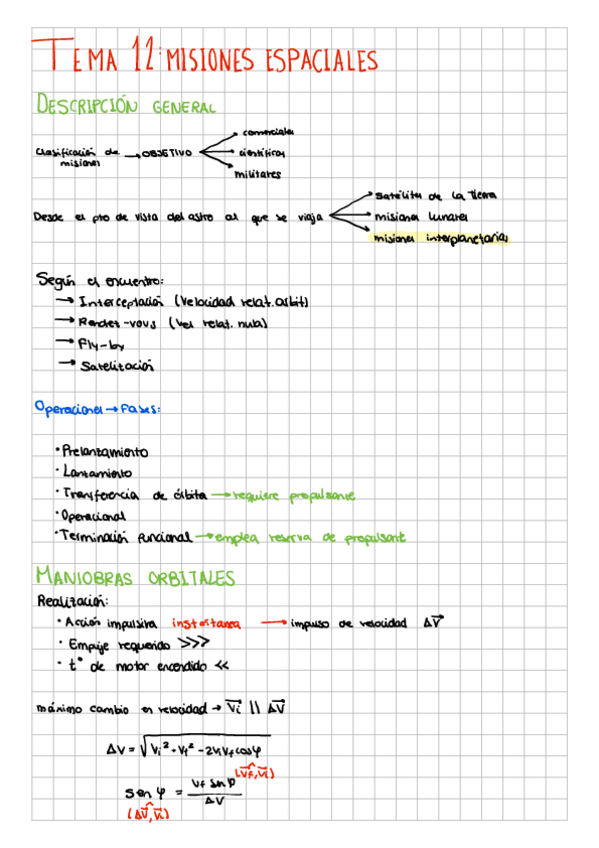 TEMA 12: MISIONES ESPACIALES
DESCRIPCIÓN GENERAL
comerciales
Clasificación de misiones → OBJETIVO
científicas
militares
satélites de la Tierra
Desde el pto de vista del astro al que se viaja
misiones lunares
misiones interplanetarias
Según el encuentro:
→ Interceptación (velocidad relat. arbit)
→ Rendez-vous (vel relat. nula)
→ Fly-by
→ Satelitación
Operaciones → Fases:
• Prelanzamiento
• Lanzamiento
• Transferencia de órbita → requiere propulsante
• Operacional
• Terminación funcional → emplea reserva de propulsant
MANIOBRAS ORBITALES
Realización:
• Acción impulsiva instantanea → impulso de velocidad ΔV⃗
• Empuje requerido >>>
• t° de motor encendido <<
máximo cambio en velocidad → V⃗i || ΔV⃗
ΔV = √(Vi² + Vf² - 2ViVf cos φ)
(V⃗f, V⃗i)
sen ψ = Vf sen φ / ΔV
(ΔV⃗, V⃗i)